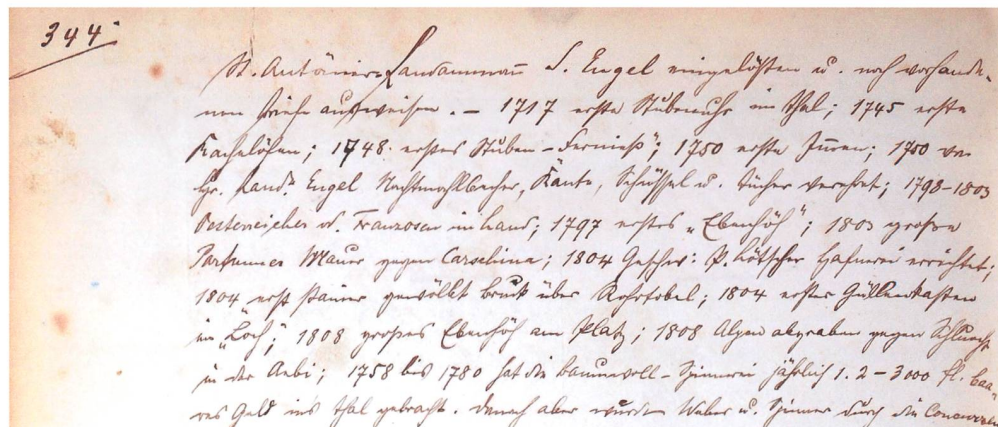 344.
St. Antönier=Landammañ S. Engel eingelösten u. noch vorhande-
nen Briefe aufweisen. – 1717 erste Stubenuhr im Thal; 1745 erste
Kachelöfen; 1748 erstes Stuben-Ferniß"; 1750 erste 1750 von
Hr. Land. Engel Nachtmahlbecher, Kante, Schüssel u. Tücher verehrt; 1798–1803
Oesterreicher u. Franzosen im Land; 1797 erstes „Ebenhöch"; 1803 große
Partnuner Mauer gegen Carschina; 1804 Geschw: P. Lötscher Hafnerei errichtet;
1804 erst steiner gewölbt Bruck über Rohrtobel; 1804 erster Güllenkasten
im „Loch"; 1808 großes Ebenhöch am Platz; 1808 Alpen abgraben gegen
in der Aebi; 1758 bis 1780 hat die Baumwoll-Spinnerei jährlich 1. 2–3000 fl. baa-
res Geld ins Thal gebracht. Danach aber wurden Weber u. Spinner durch die